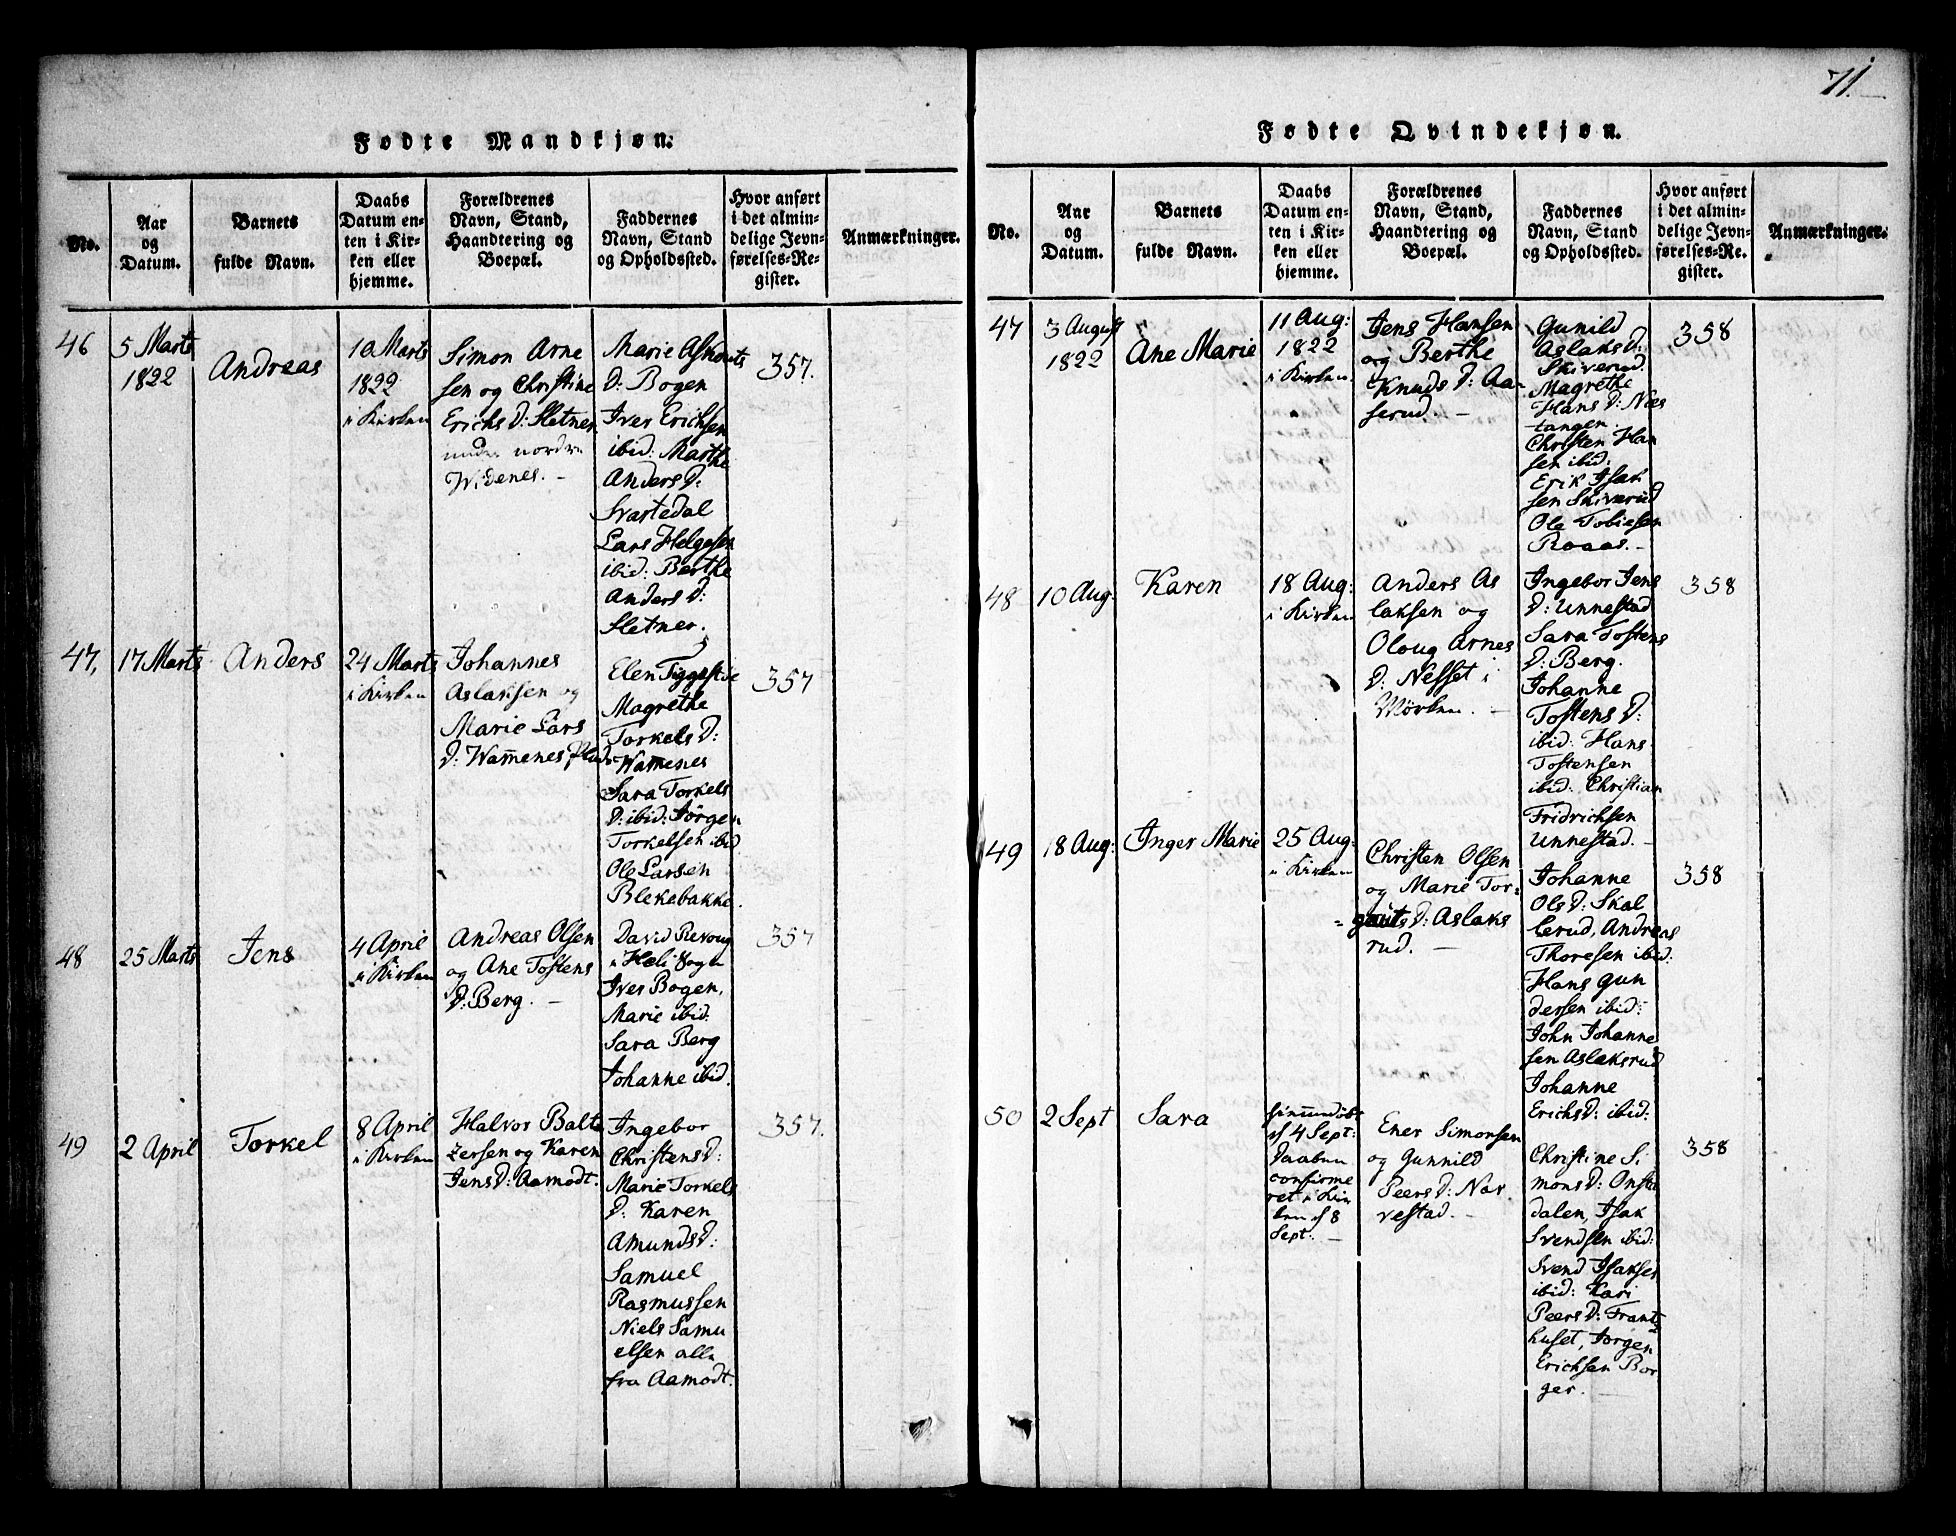 71.
Fødte Mandkjøn.
No.
Aar
og
Datum.
Barnets
fulde Navn.
Daabs
Datum en-
ten i Kir-
ken eller
hjemme.
Forældrenes
Navn, Stand,
Haandtering og
Boepæl.
Faddernes
Navn, Stand
og Opholdssted.
Hvor anført
i det almin-
delige Jevn-
førelses-Re-
gister.
Anmærkninger.
46
5 Marts
1822
Andreas
10 Marts
1822
i Kirken
Simon Arne
sen og Christine
Erichs D: Sletner
under nordre
Widenes. -
Marie Askouts
D: Bogen
Iver Erichsen
ibid: Marthe
Anders D:
Svartedal
Lars Helgesen
ibid: Berthe
Anders D:
Sletner.
357.
47,
17 Marts
Anders
24 Marts
i Kirken
Johannes
Aslaksen og
Marie Lars
D: Wamenes Plads
Elen Tiggestie
Magrethe
Torkels D:
Wamenes
Sara Torkels
D: ibid: Jørgen
Torkelsen ibid
Ole Larsen
Blekebakke.
357
48
25 Marts
Jens
4 April
i Kirken
Andreas Olsen
og Ane Tostens
D: Berg. -
David Revoug
i Sogn
Iver Bogen,
Marie ibid:
Sara Berg
Johanne ibid.
357
49
2 April
Torkel
8 April
i Kirken
Halvor Balt
zersen og Karen
Jens D: Aamodt.
Ingebor
Christens D:
Marie Torkels
D: Karen
Amunds D:
Samuel
Rasmussen
Niels Samu
elsen alle
fra Aamodt.
357.
Fødte Qvindekjøn.
No.
Aar
og
Datum.
Barnets
fulde Navn.
Daabs
Datum en-
ten i Kir-
ken eller
hjemme.
Forældrenes
Navn, Stand,
Haandtering og
Boepæl.
Faddernes
Navn, Stand
og Opholdssted.
Hvor anført
i det almin-
delige Jevn-
førelses-Re-
gister.
Anmærkninger.
47
3 August
1822
Ane Marie
11 Aug:
1822
i Kirken.
Jens Hansen
og Berthe
Knuds D: Aa
serud. -
Gunild
Aslaks D:
Skiverud.
Magrethe
Hans D: Næs
tangen.
Christen Han
sen ibid:
Erik Isak
sen Skiverud
Ole Tobiesen
Roaas. -
358
48
10 Aug:
Karen
18 Aug:
i Kirken
Anders As
laksen og
Oloug Arnes
D: Nesset i
Mørken. -
Ingebor Jens
D: Unnestad
Sara Tostens
D: Berg.
Johanne
Tostens D:
ibid: Hans
Tostensen
ibid: Christian
Fridrichsen
Unnestad. -
358
49
18 Aug:
Inger Marie
25 Aug:
i Kirken
Christen Olsen
og Marie Tor=
=gauts D: Aslaks
rud. -
Johanne
Ols D: Skal
lerud, Andreas
Thoresen ibid:
Hans Gun
dersen ibid:
John Johanne
sen Aslaksrud
Johanne
Erichs D: ibid:
358
50
2 Sept
Sara
4 Sept:
Daaben
confirme
ret i Kir
ken d 8
Sept. -
Ener Simonsen
og Gunnild
Peers D: Nar
vestad. -
Christine Si
mons D: Onsta
dalen, Isak
Svendsen ibid:
Svend Isaksen
ibid: Kari
Peers D: Frant
huset, Jørgen
Erichsen Bor
ger. -
358